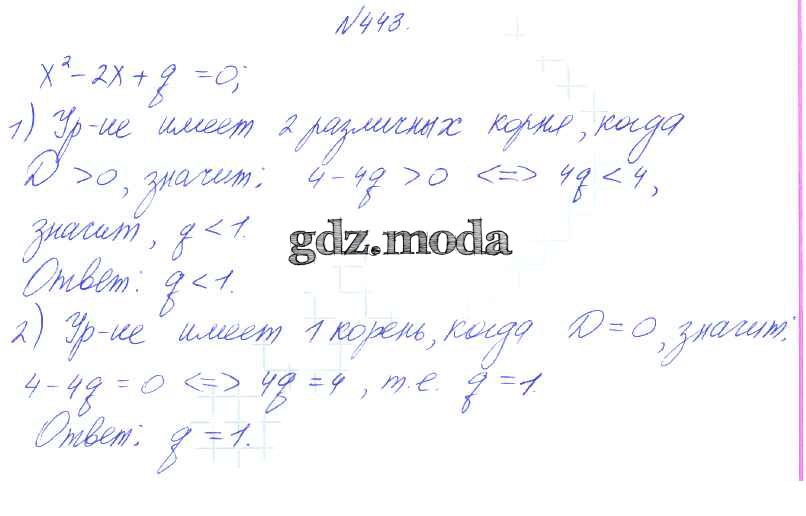 №443.
x² - 2x + q = 0;
1) Ур-ие имеет 2 различных корня, когда
D > 0, значит: 4 - 4q > 0 <=> 4q < 4,
значит, q < 1.
gdz.moda
Ответ: q < 1.
2) Ур-ие имеет 1 корень, когда D = 0, значит:
4 - 4q = 0 <=> 4q = 4, т.е. q = 1.
Ответ: q = 1.